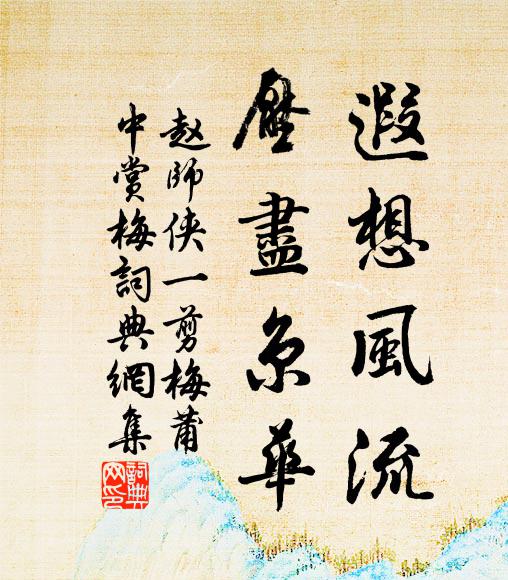 遐想風流
壓盡京華
赵師侠一剪梅莆
中賞梅詞典網集